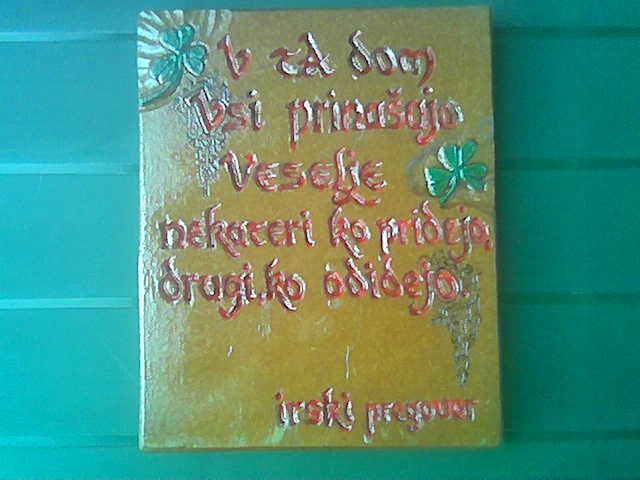 V TA dom
vsi prinašajo
veselje
nekateri ko pridejo,
drugi, ko odidejo.
irski pregovor